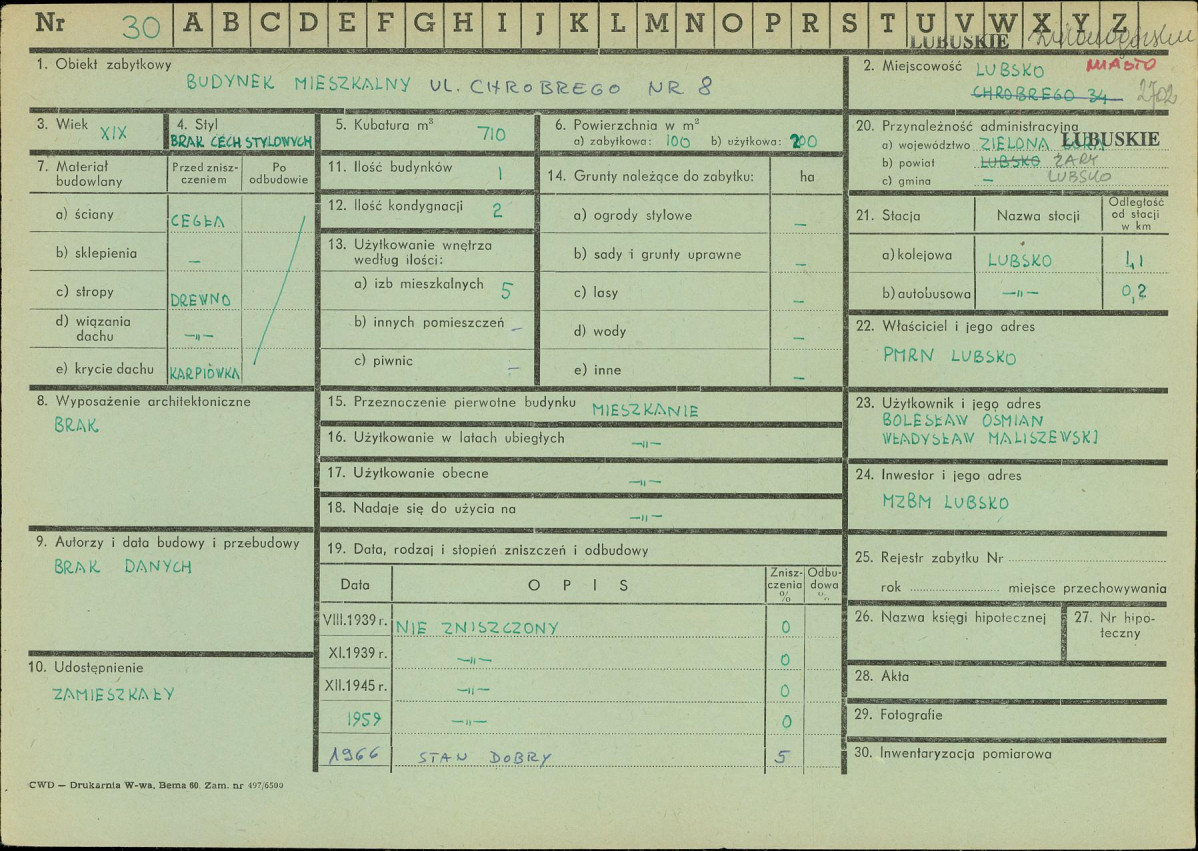 Nr 30 A B C D E F G H I J K L M N O P R S T U V W X Y Z
LUBUSKIE
1. Obiekt zabytkowy
BUDYNEK MIESZKALNY UL. CHROBREGO NR 8
2. Miejscowość LUBSKO MIASTO
CHROBREGO 34 2702
3. Wiek XIX
4. Styl
BRAK CECH STYLOWYCH
5. Kubatura m³ 710
6. Powierzchnia w m²
a) zabytkowa: 100 b) użytkowa: 200
20. Przynależność administracyjna
a) województwo ZIELONA GÓRA LUBUSKIE
b) powiat LUBSKO ŻARY
c) gmina – LUBSKO
7. Materiał budowlany
Przed zniszczeniem
Po odbudowie
a) ściany CEGŁA
b) sklepienia –
c) stropy DREWNO
d) wiązania dachu –"–
e) krycie dachu KARPIÓWKA
11. Ilość budynków 1
12. Ilość kondygnacji 2
13. Użytkowanie wnętrza
według ilości:
a) izb mieszkalnych 5
b) innych pomieszczeń –
c) piwnic –
14. Grunty należące do zabytku: ha
a) ogrody stylowe –
b) sady i grunty uprawne –
c) lasy –
d) wody –
e) inne –
21. Stacja Nazwa stacji Odległość od stacji w km
a) kolejowa LUBSKO 1,1
b) autobusowa –"– 0,2
22. Właściciel i jego adres
PMRN LUBSKO
8. Wyposażenie architektoniczne
BRAK
15. Przeznaczenie pierwotne budynku MIESZKANIE
16. Użytkowanie w latach ubiegłych –"–
17. Użytkowanie obecne –"–
18. Nadaje się do użycia na –"–
23. Użytkownik i jego adres
BOLESŁAW OSMIAN
WŁADYSŁAW MALISZEWSKI
24. Inwestor i jego adres
MZBM LUBSKO
9. Autorzy i data budowy i przebudowy
BRAK DANYCH
19. Data, rodzaj i stopień zniszczeń i odbudowy
Data OPIS Zniszczenia % Odbudowa %
VIII.1939 r. NIE ZNISZCZONY 0
XI.1939 r. –"– 0
XII.1945 r. –"– 0
1959 –"– 0
1966 STAN DOBRY 5
25. Rejestr zabytku Nr
rok miejsce przechowywania
26. Nazwa księgi hipotecznej
27. Nr hipoteczny
10. Udostępnienie
ZAMIESZKAŁY
28. Akta
29. Fotografie
30. Inwentaryzacja pomiarowa
CWD — Drukarnia W-wa, Bema 60. Zam. nr 497/6500